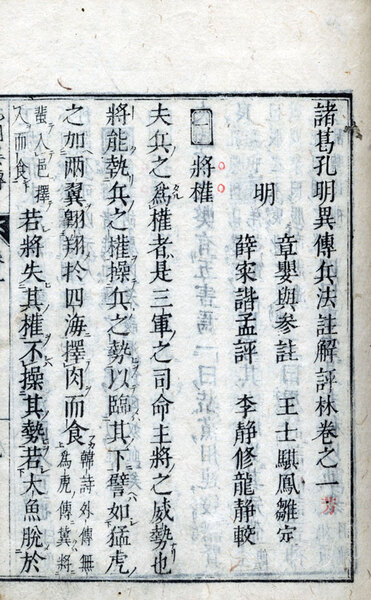 諸葛孔明異傳兵法註解評林卷之一
章嬰與參註　王士騏鳳雛定
明
薛寀諧孟評　李靜修龍靜較
一　將權
夫兵之爲權者是三軍之司命主將之威勢也
將能執兵之權操兵之勢以臨其下譬如猛虎
之加兩翼翺翔於四海擇肉而食
韓詩外傳無
爲虎傳冀將
蜚入邑擇
人而食
若將失其權不操其勢若大魚脫於